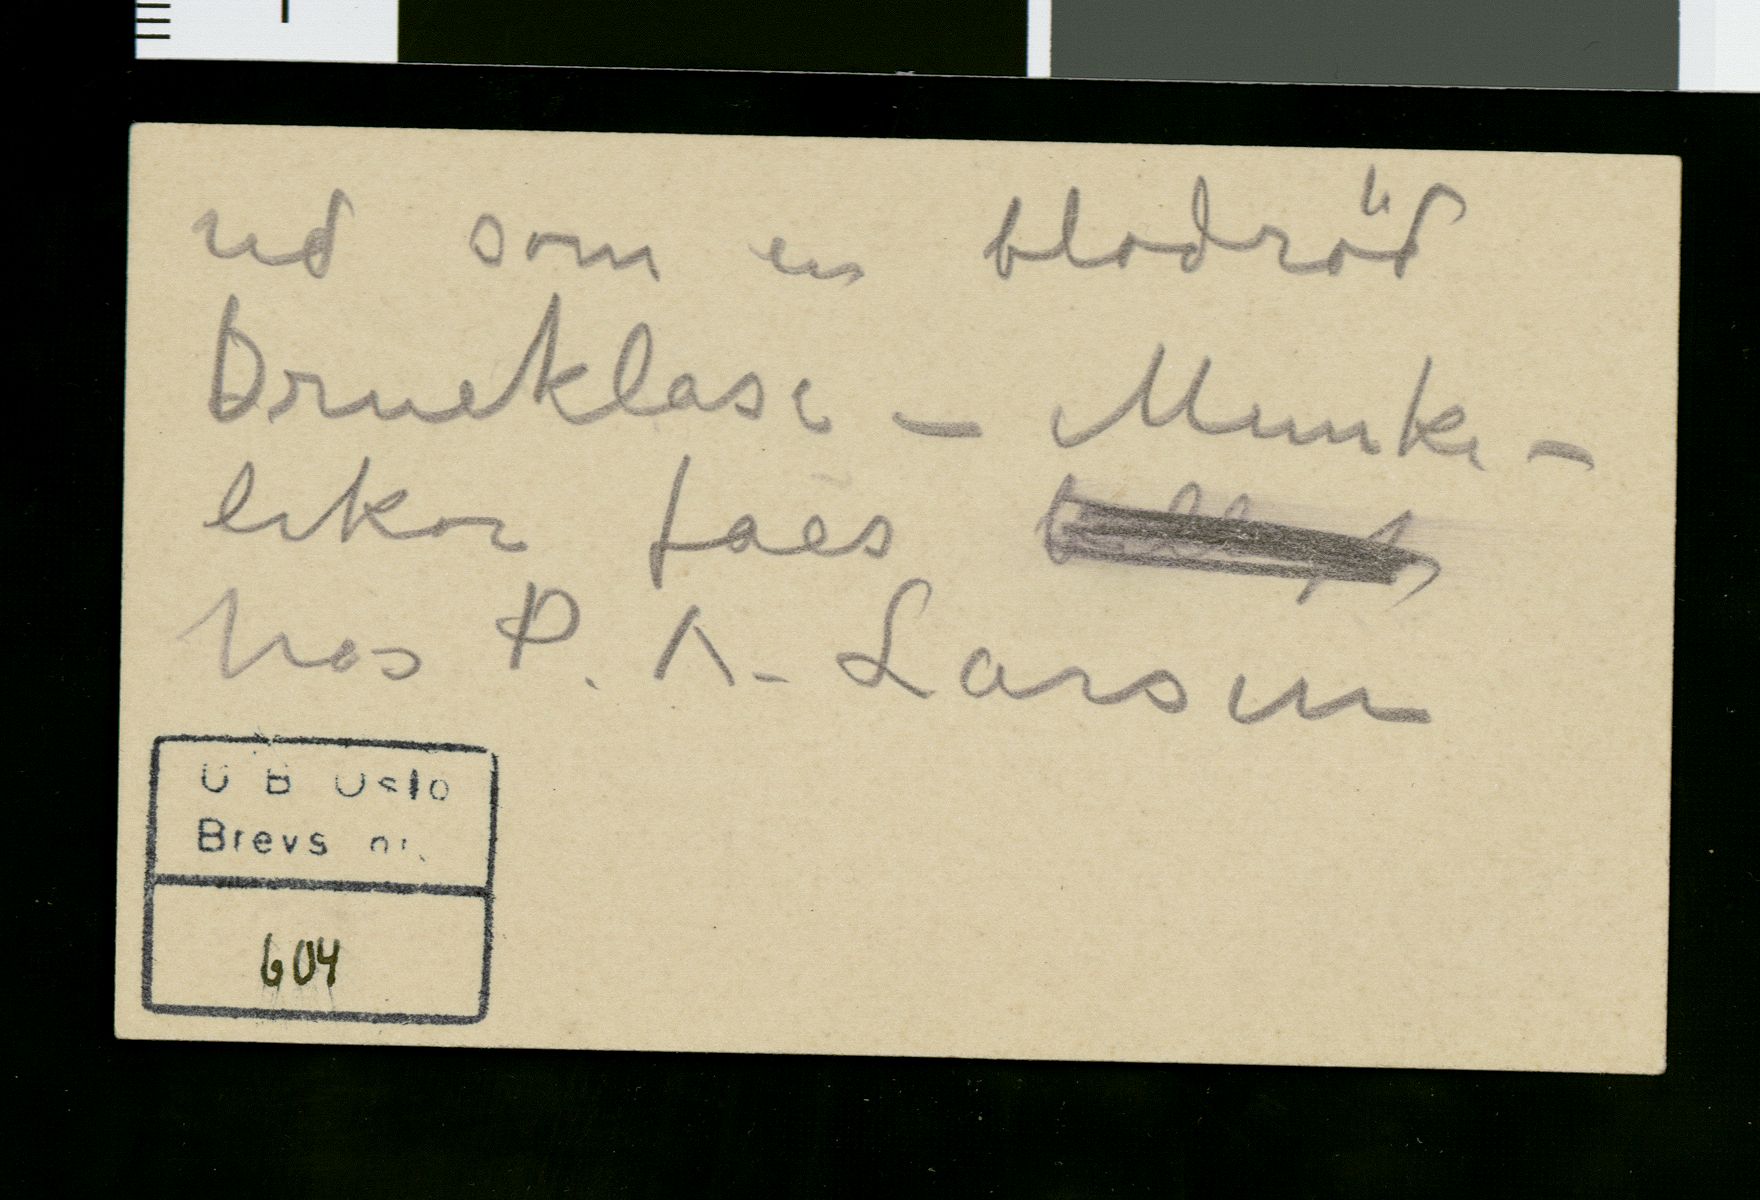 ud som en blodröd
Drueklase – Munke-
likør faes
hos P. A. Larsen
U B Oslo
Brevs nr.
604